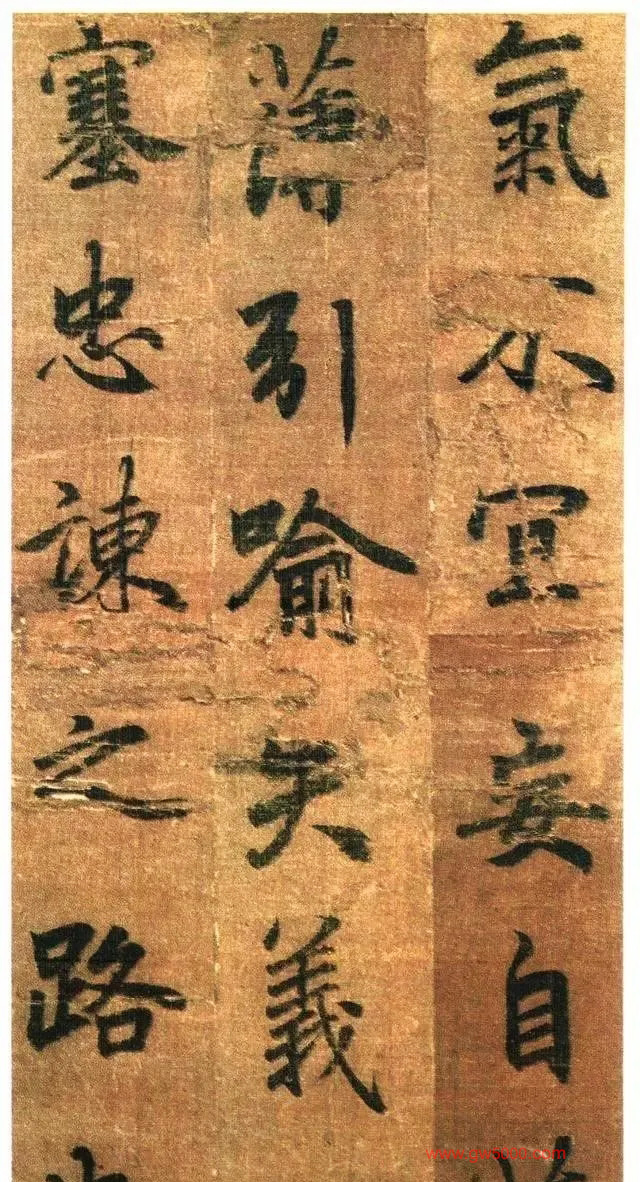 氣不宜妄自
薄引喻失義
塞忠諫之路
www.gw5000.com